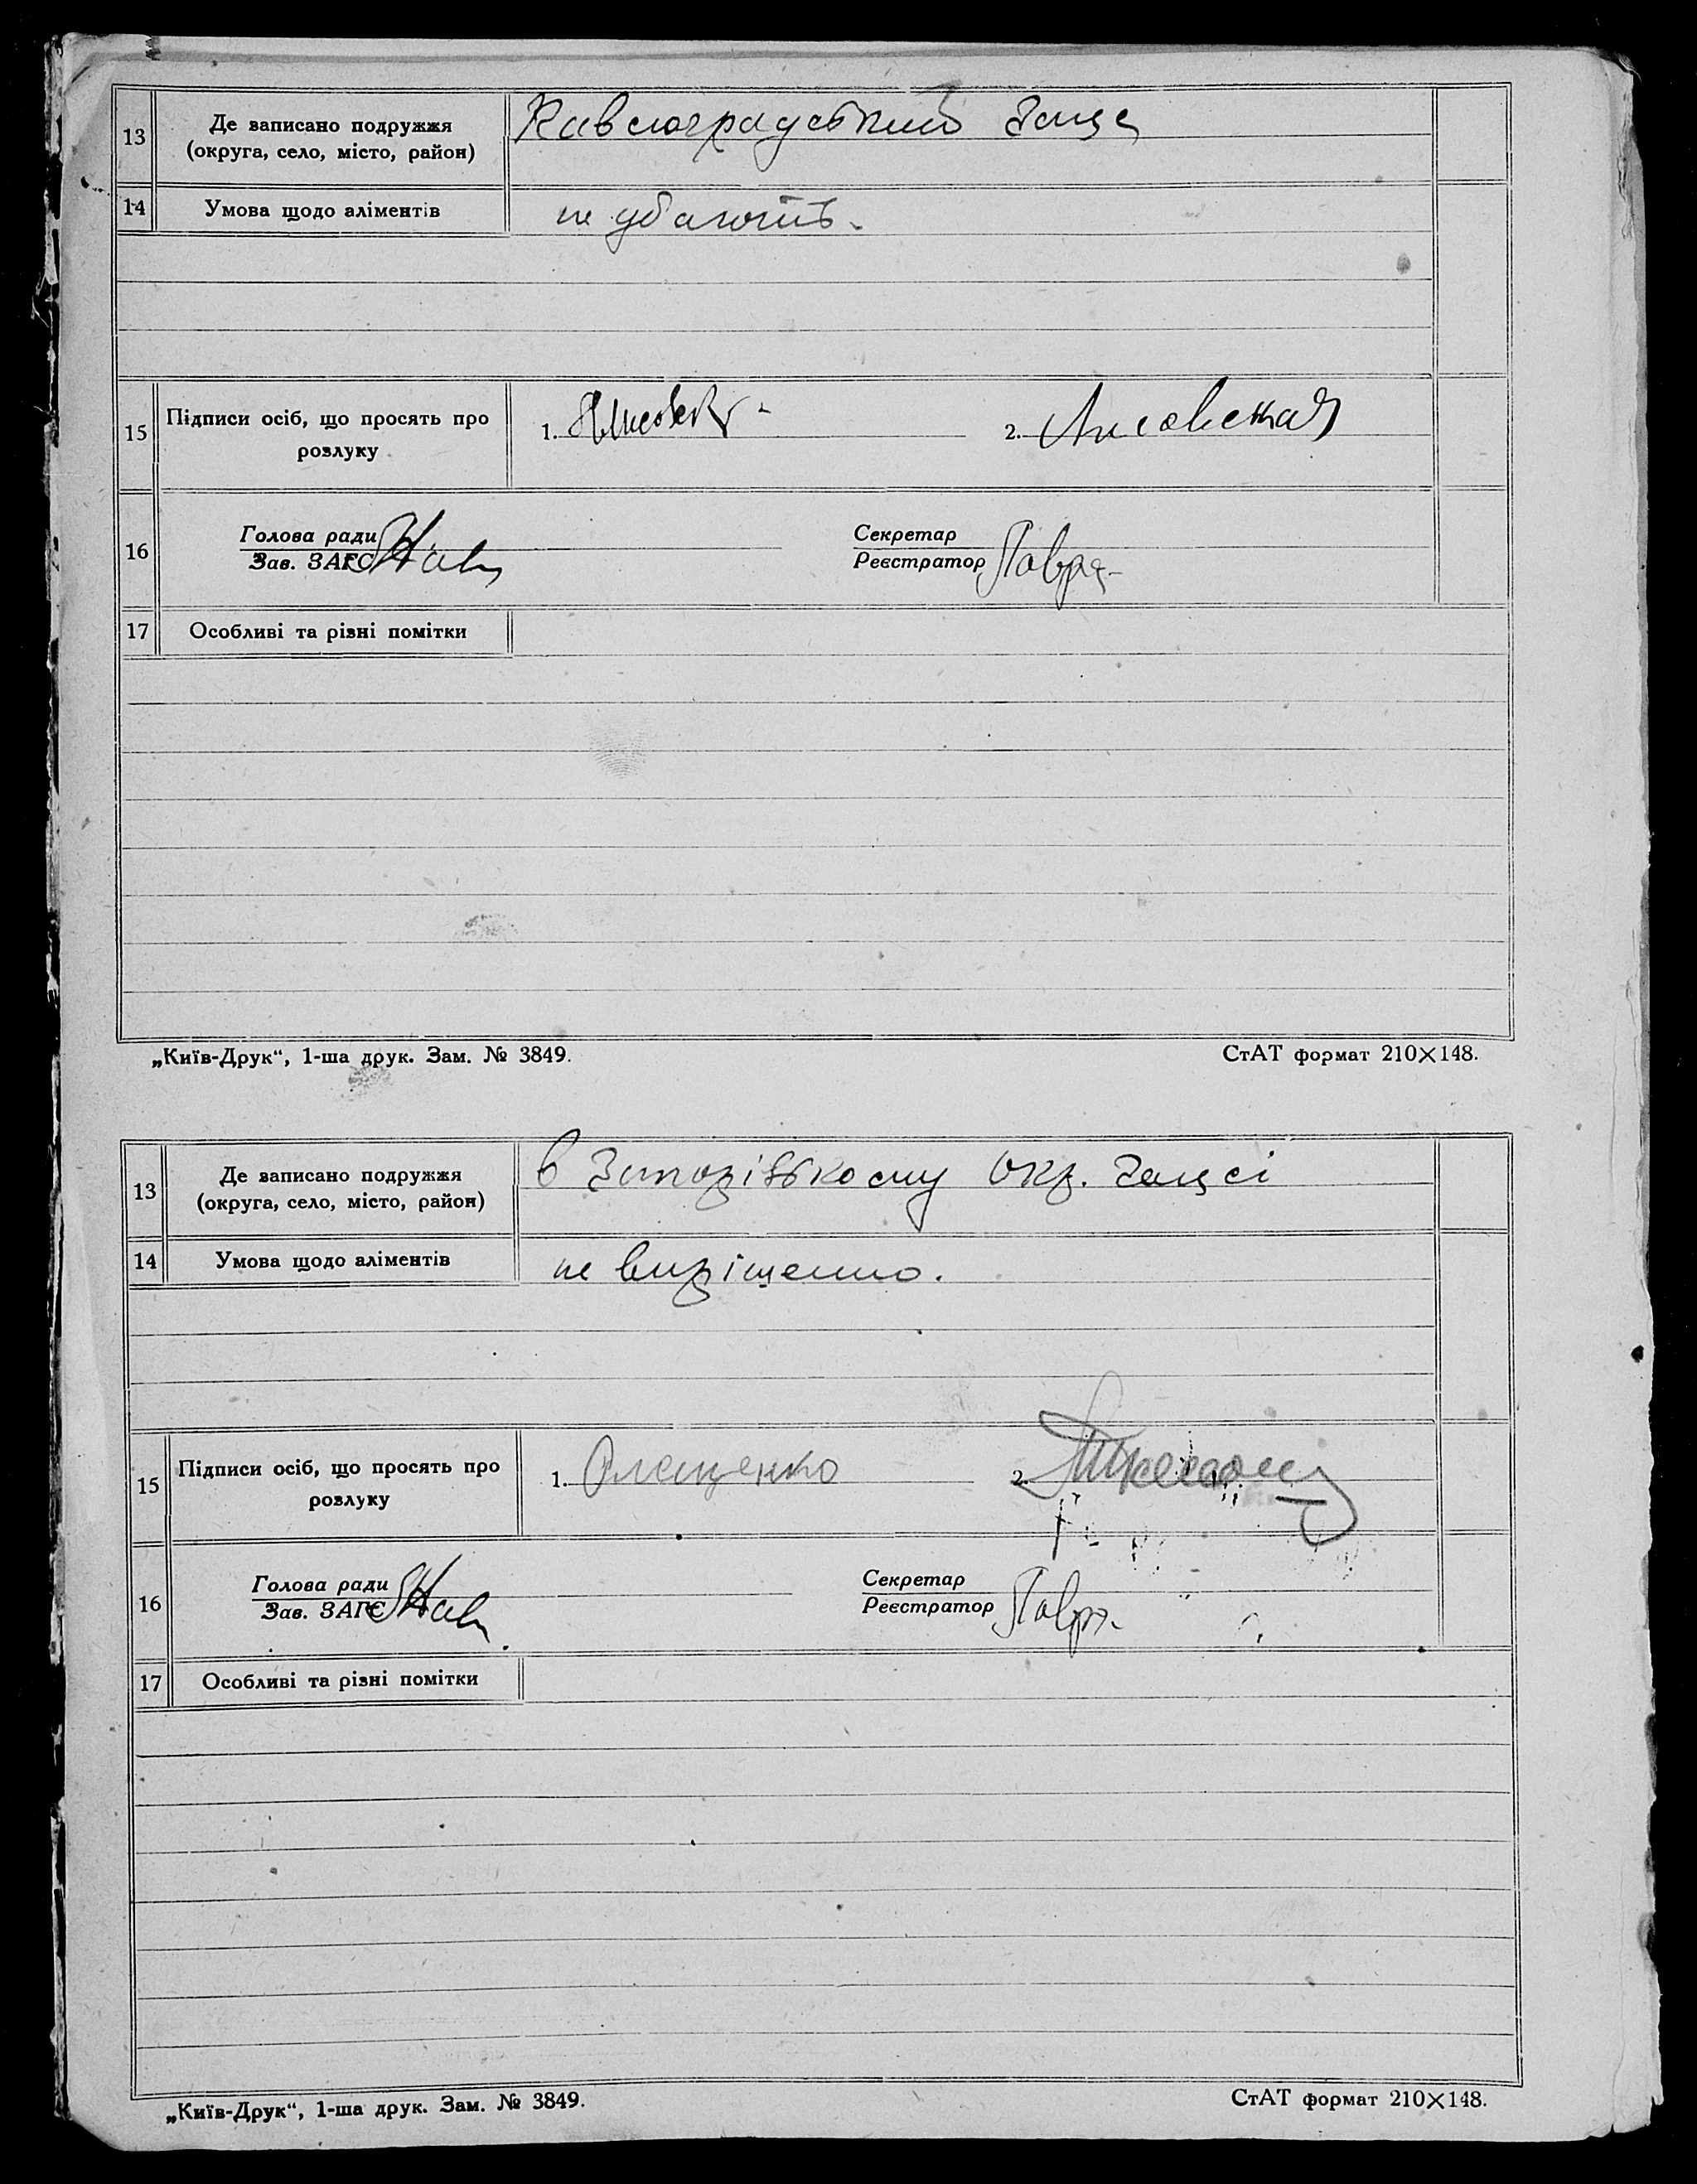 13 Де записано подружжя
(округа, село, місто, район)
14 Умова щодо аліментів
не
15 Підписи осіб, що просять про
розлуку
1. 2. Лисовская
16 Голова ради
Зав. ЗАГС
Секретар
Реєстратор
17 Особливі та різні помітки
„Київ-Друк“, 1-ша друк. Зам. № 3849. СтАТ формат 210×148.
13 Де записано подружжя
(округа, село, місто, район)
в окр. загсі
14 Умова щодо аліментів
не вирішенно.
15 Підписи осіб, що просять про
розлуку
1. 2.
16 Голова ради
Зав. ЗАГС
Секретар
Реєстратор
17 Особливі та різні помітки
„Київ-Друк“, 1-ша друк. Зам. № 3849. СтАТ формат 210×148.